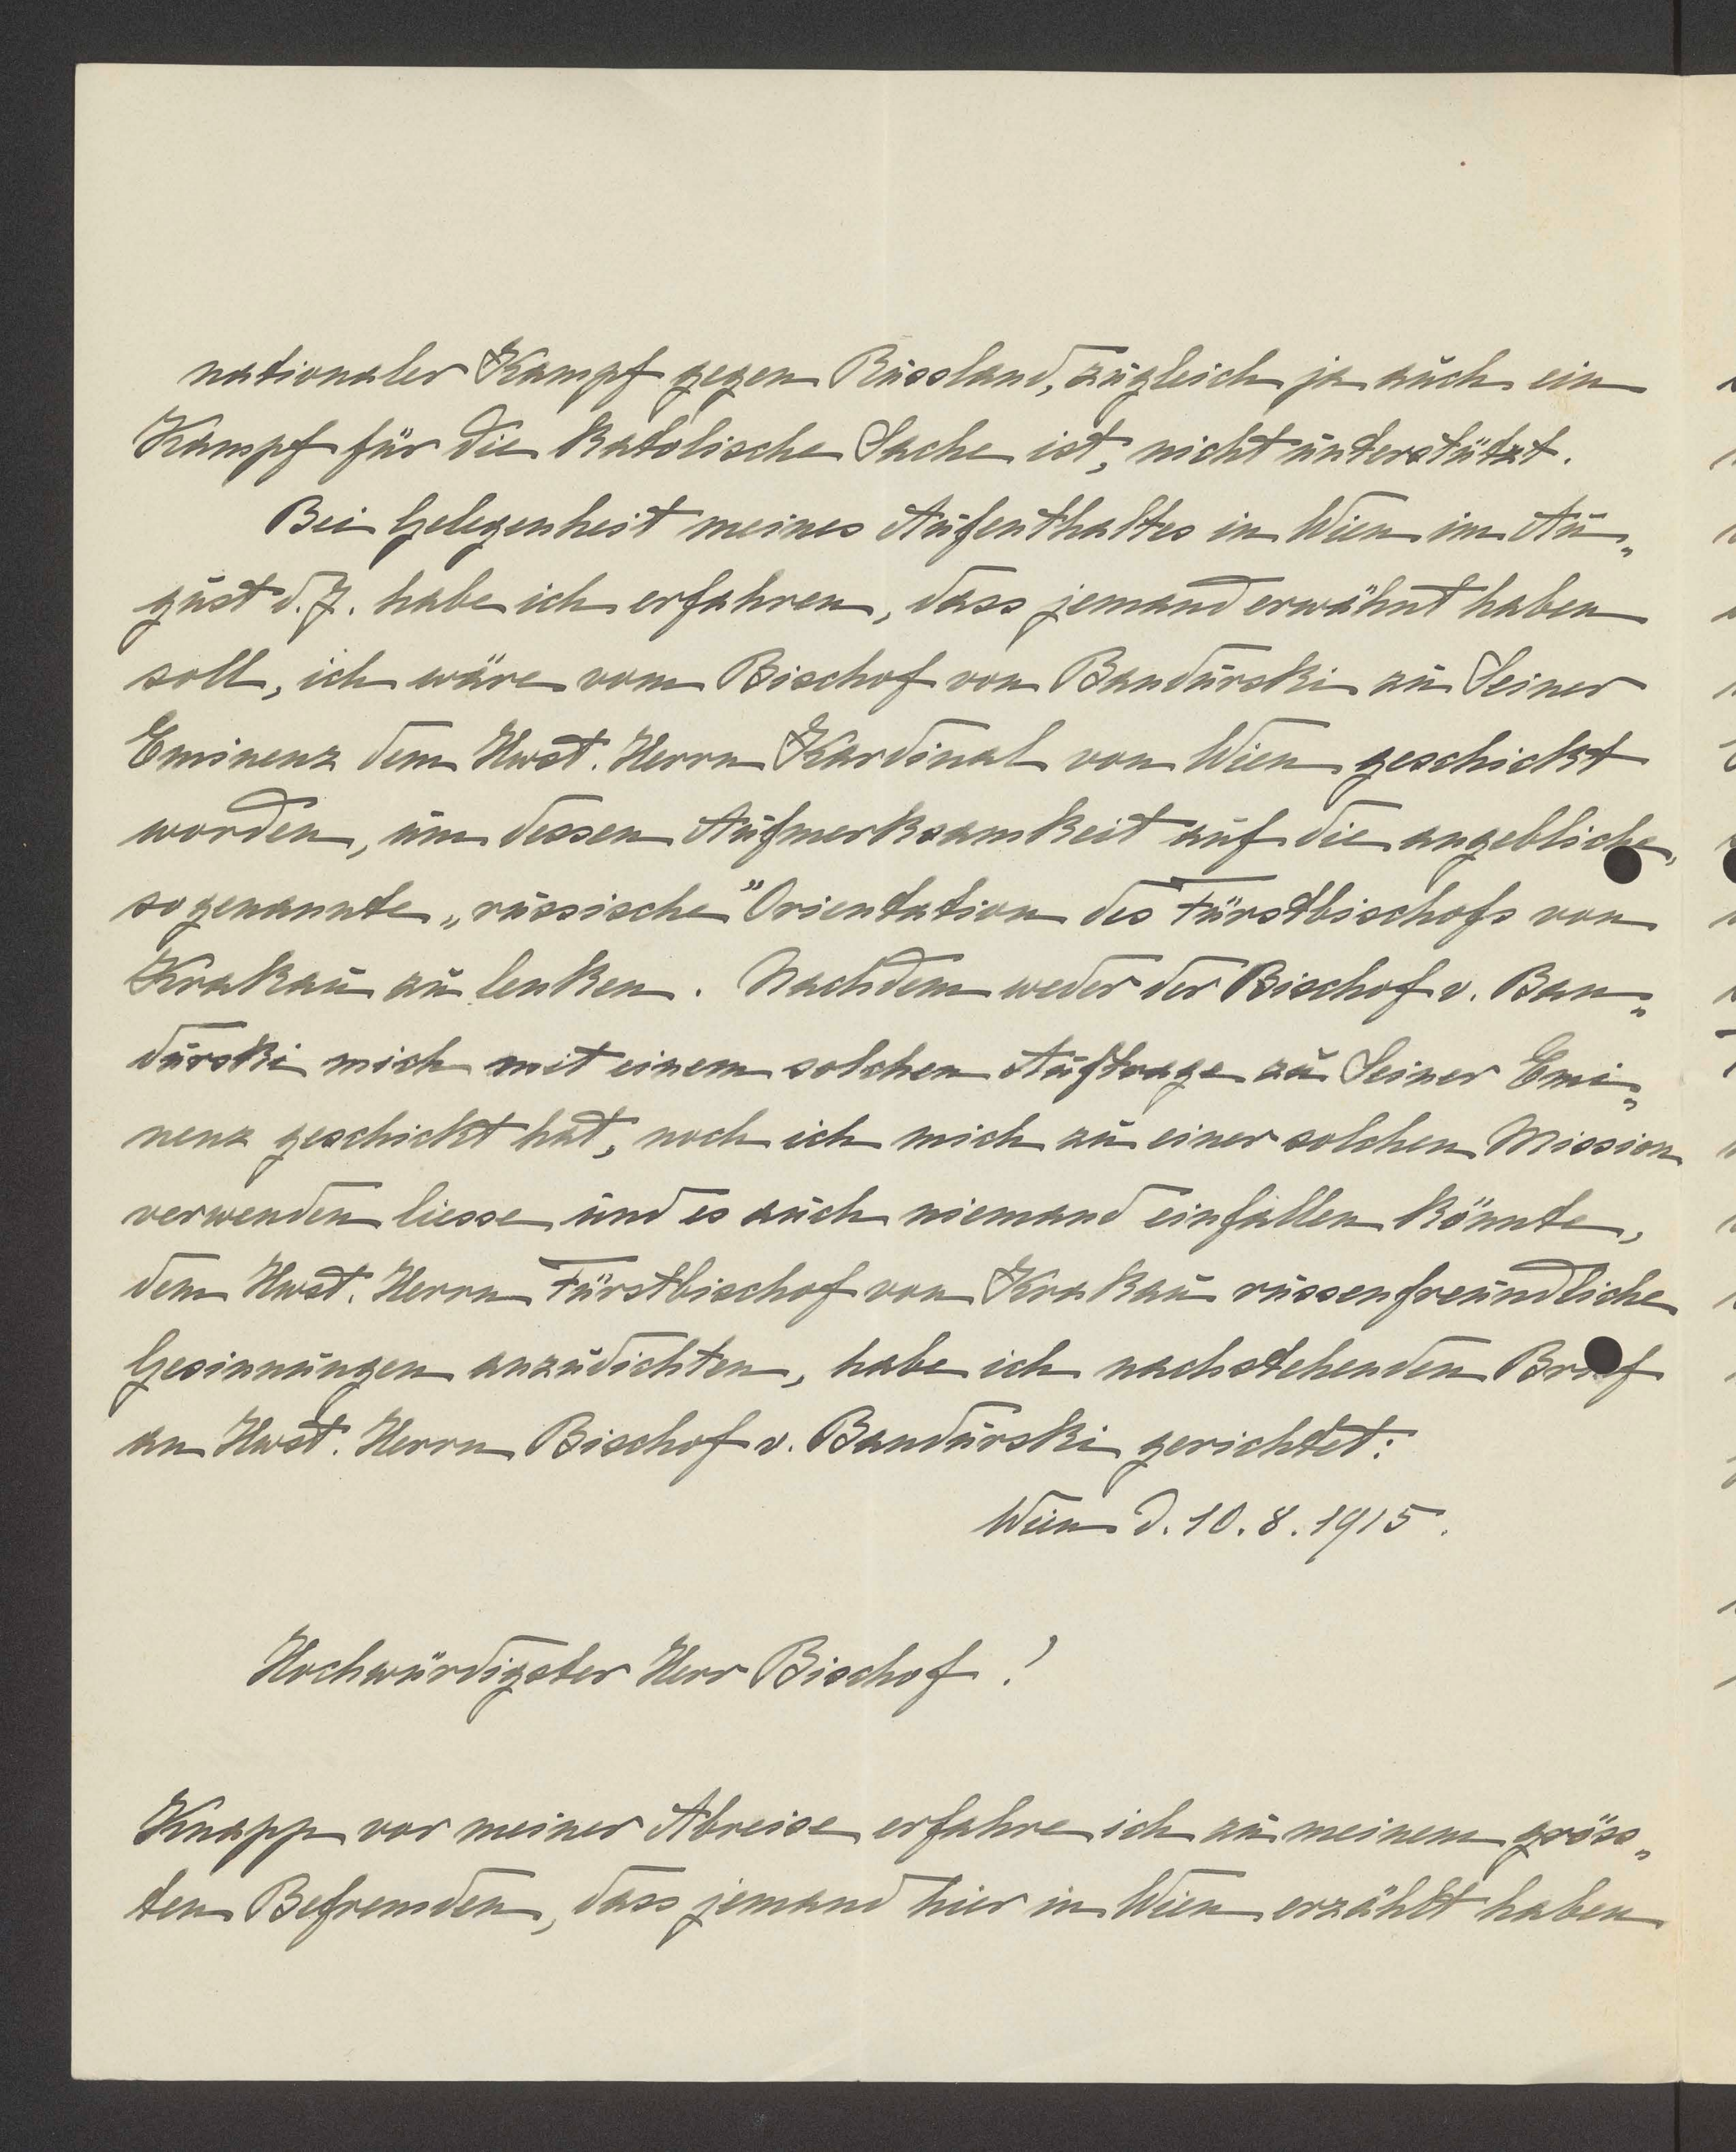 nationaler Kampf gegen Russland, zugleich ja auch ein
Kampf für die katolische Sache ist, nicht unterstützt.
Bei Gelegenheit meines Aufenthaltes in Wien im Au„
gust d. J. habe ich erfahren, dass jemand erwähnt haben
soll, ich wäre vom Bischof von Bandurski zu Seiner
Eminenz dem Hwst. Herrn Kardinal von Wien geschickt
worden, um dessen Aufmerksamkeit auf die angebliche,
sogenannte „russische" Orientation des Fürstbischofs von
Krakau zu lenken. Nachdem weder der Bischof v. Ban„
durski mich mit einem solchen Auftrage zu Seiner Emi„
nenz geschickt hat, noch ich mich zu einer solchen Mission
verwenden liesse und es auch niemand einfallen könnte,
dem Hwst. Herrn Fürstbischof von Krakau russenfreundliche
Gesinnungen anzudichten, habe ich nachstehenden Brief
an Hwst. Herrn Bischof v. Bandurski gerichtet:
Wien d. 10. 8. 1915.
Hochwürdigster Herr Bischof!
Knapp vor meiner Abreise erfahre ich zu meinem gröss„
ten Befremden, dass jemand hier in Wien erzählt haben